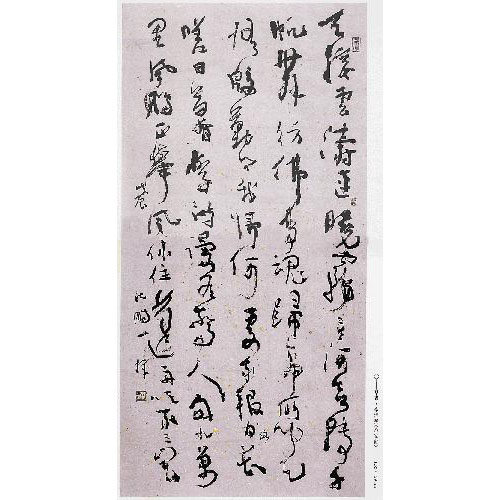 天接雲濤連曉霧星河欲轉千
帆舞彷彿夢魂歸帝所聞天
語殷勤問我歸何處我報路長
嗟日暮學詩謾有驚人句九萬
里風鵬正舉風休住蓬舟吹取三山去
戊辰
沈鵬